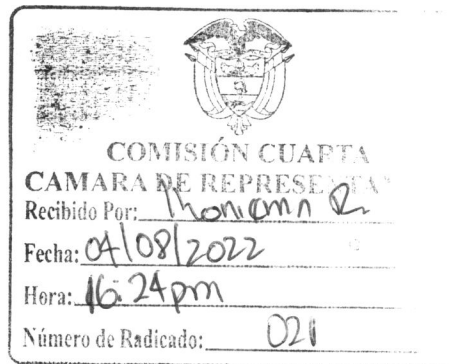 COMISIÓN CUARTA
CAMARA DE REPRESENTA
Recibido Por: Jhoniamn R
Fecha: 04/08/2022
Hora: 16:24pm
Número de Radicado: 021